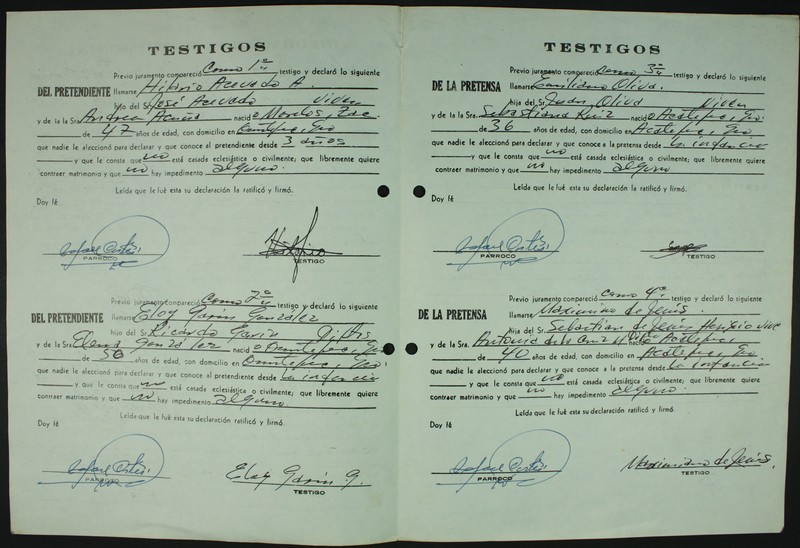 TESTIGOS
Previo juramento compareció Como 1º testigo y declaró lo siguiente
DEL PRETENDIENTE llamarse Hilario Acevedo A.
hijo del Sr. José Acevedo Viven
y de la Sra. Andrea Acuña nació
de 47 años de edad, con domicilio en
que nadie le aleccionó para declarar y que conoce al pretendiente desde 3 años
y que le consta que no está casado eclesiástica o civilmente; que libremente quiere
contraer matrimonio y que no hay impedimento alguno.
Leída que le fué esta su declaración la ratificó y firmó.
Doy fé
Rafael Cortés
PARROCO
TESTIGO
Previo juramento compareció Como 2º testigo y declaró lo siguiente
DEL PRETENDIENTE llamarse Eloy Garín González
hijo del Sr. Ricardo Garín
y de la Sra. Elena González nació
de 50 años de edad, con domicilio en
que nadie le aleccionó para declarar y que conoce al pretendiente desde la infancia
y que le consta que no está casada eclesiástica o civilmente; que libremente quiere
contraer matrimonio y que no hay impedimento alguno.
Leída que le fué esta su declaración la ratificó y firmó.
Doy fé
Rafael Cortés
PARROCO
Eloy Garín G.
TESTIGO
TESTIGOS
Previo juramento compareció Como 3º testigo y declaró lo siguiente
DE LA PRETENSA llamarse Emiliano Oliva.
hija del Sr. Juan Oliva Viven
y de la Sra. Sebastiana Ruiz nació
de 36 años de edad, con domicilio en
que nadie le aleccionó para declarar y que conoce a la pretensa desde la infancia
y que le consta que no está casada eclesiástica o civilmente; que libremente quiere
contraer matrimonio y que no hay impedimento alguno.
Leída que le fué esta su declaración la ratificó y firmó.
Doy fé
Rafael Cortés
PARROCO
TESTIGO
Previo juramento compareció Como 4º testigo y declaró lo siguiente
DE LA PRETENSA llamarse Maximino de Jesús.
hija del Sr. Sebastián de Jesús vive
y de la Sra. Antonia de la Cruz
de 40 años de edad, con domicilio en
que nadie le aleccionó para declarar y que conoce a la pretensa desde la infancia
y que le consta que no está casada eclesiástica o civilmente; que libremente quiere
contraer matrimonio y que no hay impedimento alguno.
Leída que le fué esta su declaración la ratificó y firmó.
Doy fé
Rafael Cortés
PARROCO
Maximino de Jesús.
TESTIGO